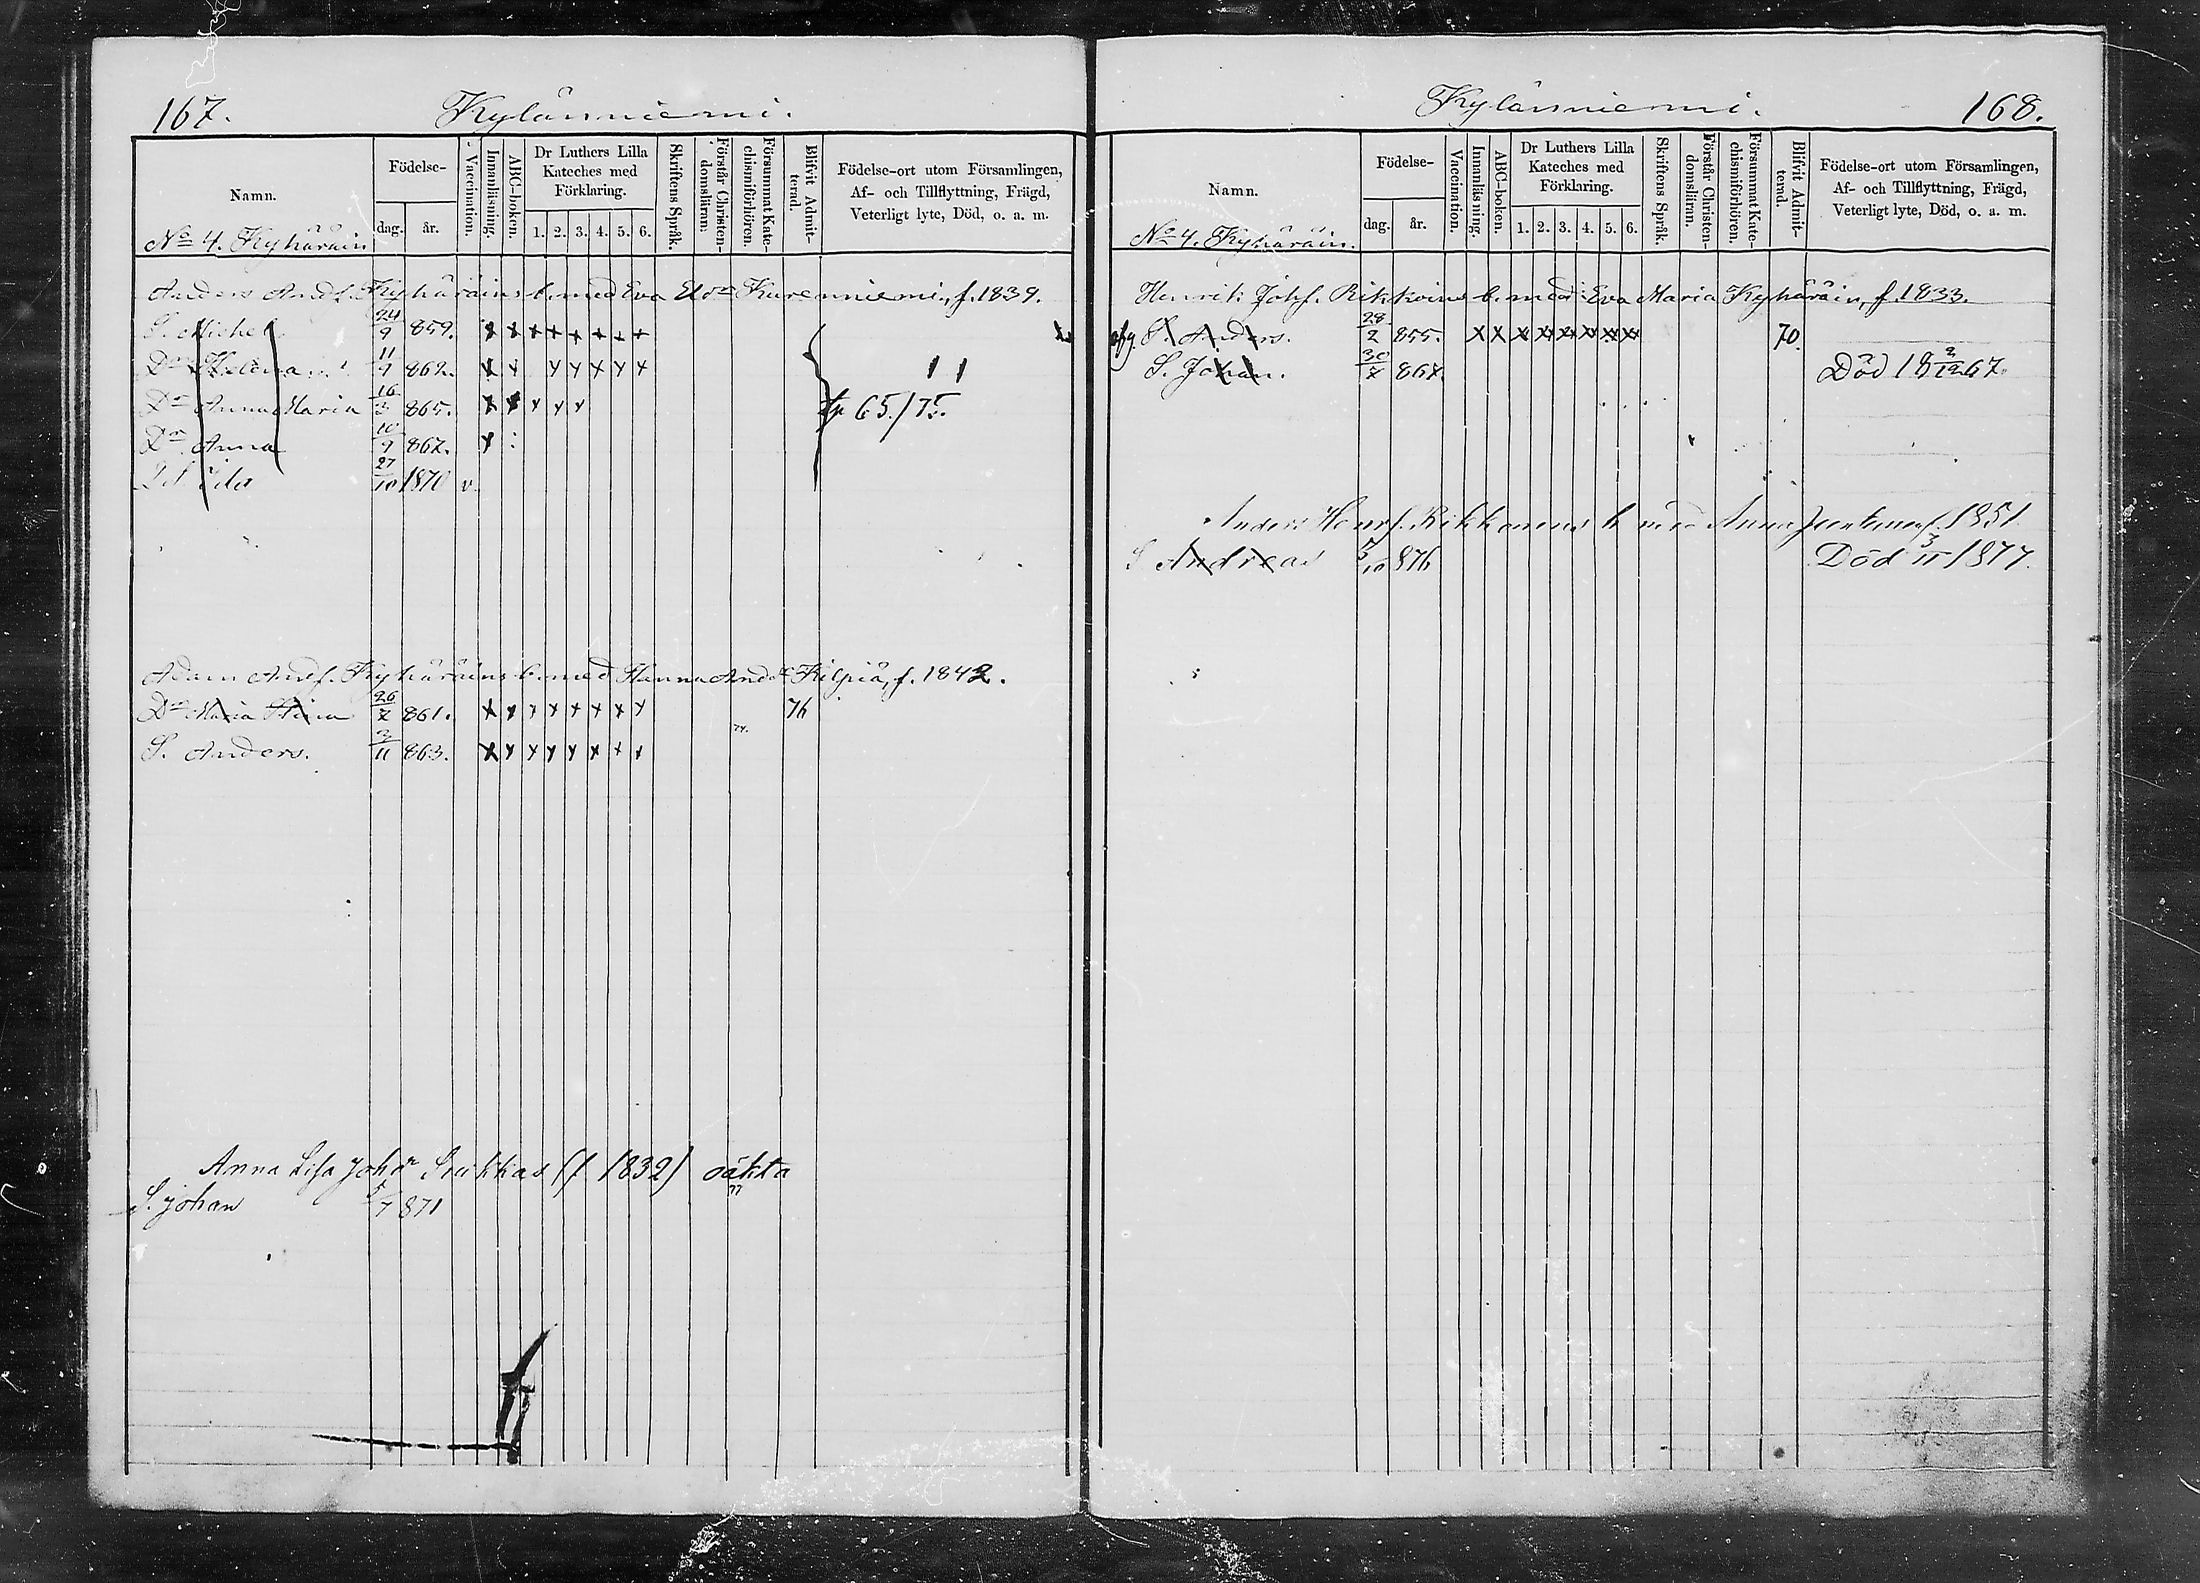 167.
Kylänniemi.
Namn.
Födelse-
dag. år.
Vaccination.
Innanläsning.
ABC-boken.
Dr Luthers Lilla
Kateches med
Förklaring.
1. 2. 3. 4. 5. 6.
Skriftens Språk.
Förstår Christen-
domsläran.
Försummat Kate-
chismiförhören.
Blifvit Admit-
terad.
Födelse-ort utom Församlingen,
Af- och Tillflyttning, Frägd,
Veterligt lyte, Död, o. a. m.
No 4. Kyhäräin
Anders Andf. Kyhäräins b. med Eva Kurenniemi, f. 1839.
S. Michel 24/9 859. x x x x x x x x
Dr Helena 11/9 862. x x x x x x x
Dr Anna Maria 16/3 865. x x x x x fp 65./75.
Dr Anna 10/9 867. x
Ida 27/10 1870 v
Adam Andf. Kyhäräins b. med Hanna Andr Kilpiä, f. 1842.
Dr Maria Stina 26/7 861. x x x x x x x x 76
S. Anders. 3/11 863. x x x x x x x x
Anna Lisa Johdr (f 1832) oäkta
77
S. Johan 5/7 871
Kylänniemi.
168.
Namn.
Födelse-
dag. år.
Vaccination.
Innanläsning.
ABC-boken.
Dr Luthers Lilla
Kateches med
Förklaring.
1. 2. 3. 4. 5. 6.
Skriftens Språk.
Förstår Christen-
domsläran.
Försummat Kate-
chismiförhören.
Blifvit Admit-
terad.
Födelse-ort utom Församlingen,
Af- och Tillflyttning, Frägd,
Veterligt lyte, Död, o. a. m.
No 4. Kyhäräin.
Henrik Johf. Rikkoins b. med Eva Maria Kyhäräin, f. 1833.
S. Anders. 28/2 855. x x x x x x x x 70.
S. Johan. 30/7 867. Död 18 2/12 67.
Anders Henrf. Rikkonens b med Anna f. 1851
S Andreas 7/10 876 Död 3/11 1877.